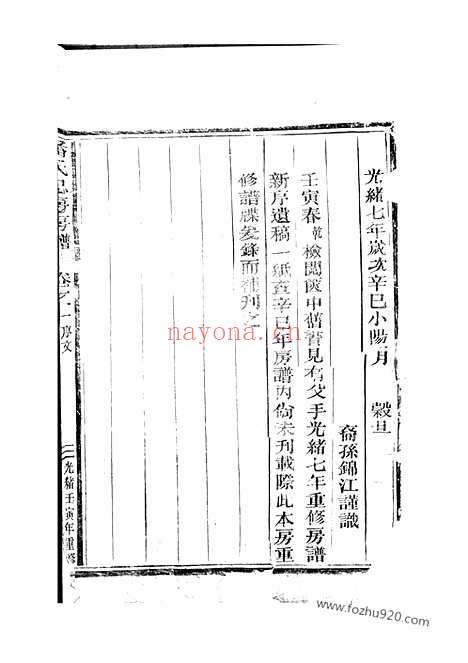 光緒七年歲次辛巳小陽月　穀旦
裔孫錦江謹識
壬寅春黃檢閱篋中舊書見有父手光緒七年重修房譜
新序遺稿一紙查辛巳年房譜內尚未刊載際此本房重
修譜牒爰錄而補刊之
氏忠房房譜
卷之一序文
二
光緒壬寅年重修
nayona.cn
www.fozhu920.com